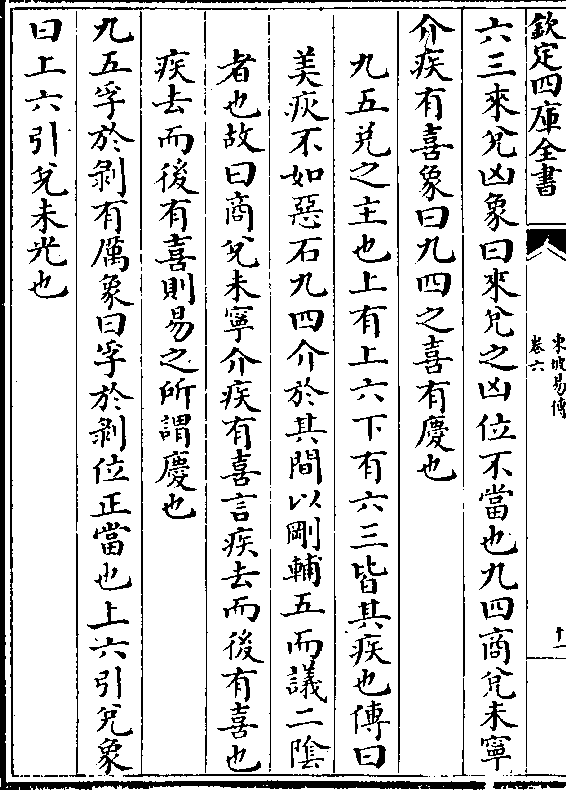 欽定四庫全書
東坡易傳
卷六
十一
六三來兊凶象曰來兊之凶位不當也九四商兊未寧
介疾有喜象曰九四之喜有慶也
九五兊之主也上有上六下有六三皆其疾也傳曰
美疢不如惡石九四介於其間以剛輔五而議二隂
者也故曰商兊未寧介疾有喜言疾去而後有喜也
疾去而後有喜則易之所謂慶也
九五孚於剥有厲象曰孚於剥位正當也上六引兊象
曰上六引兊未光也